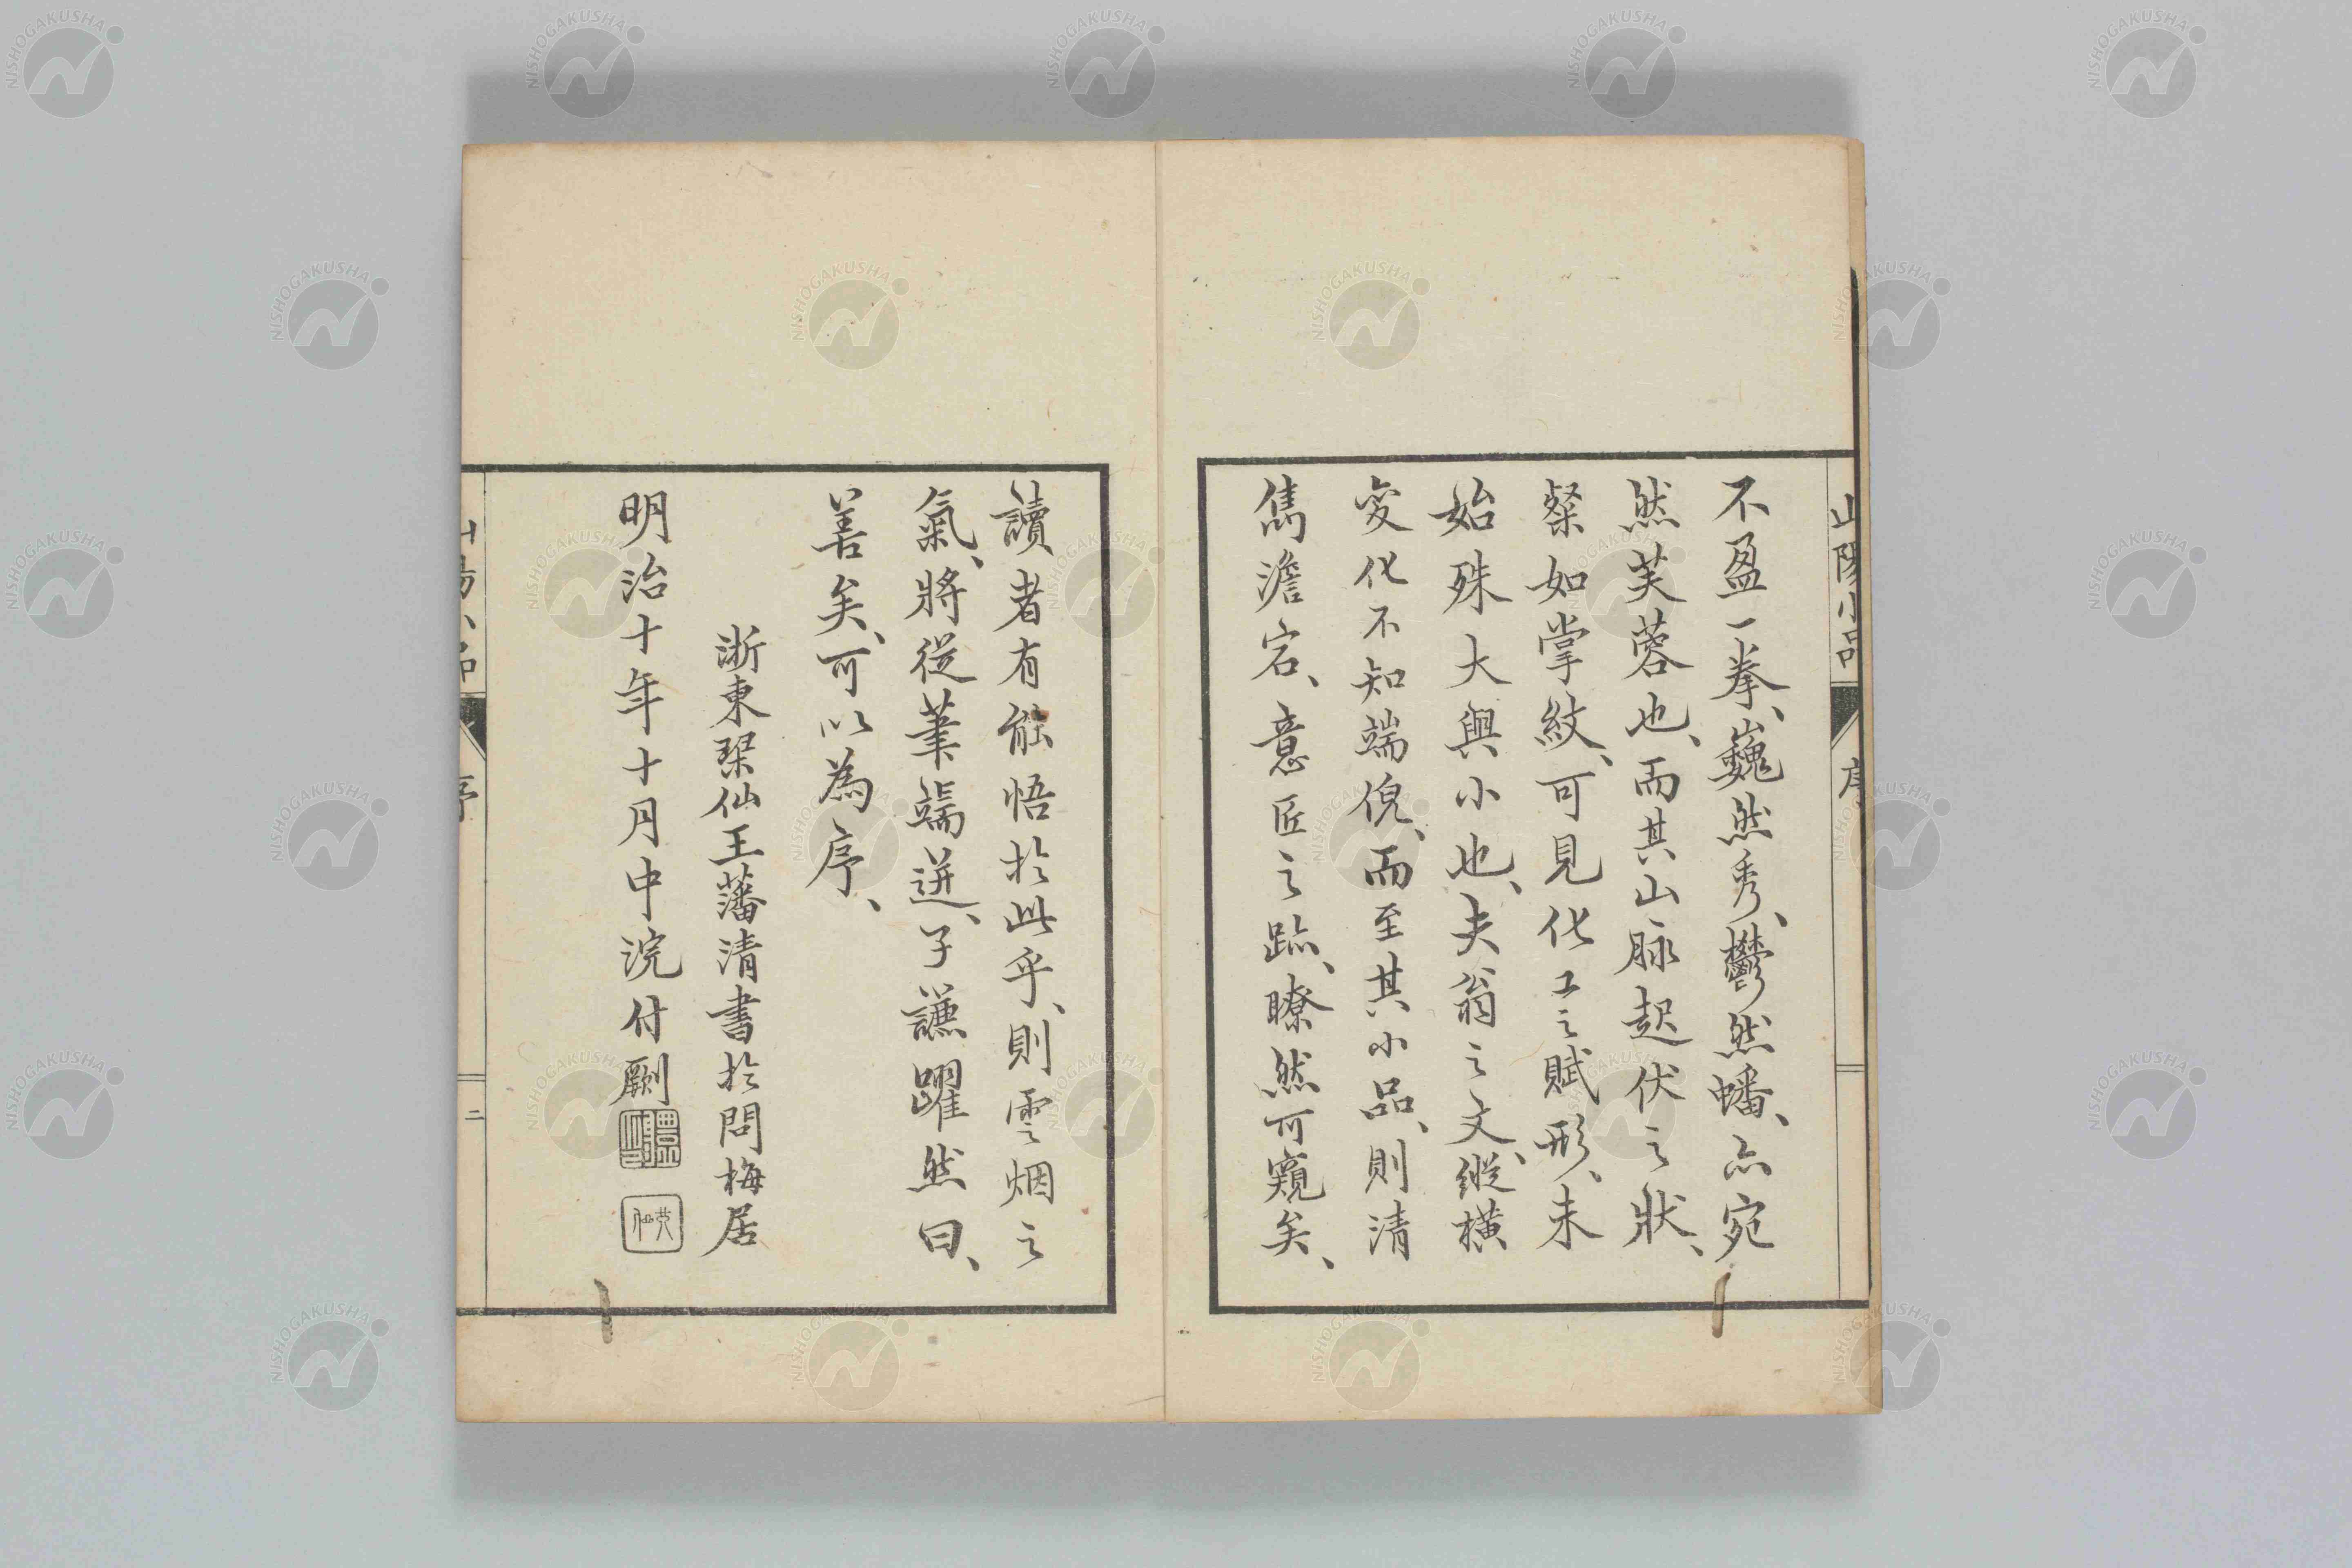 山陽小品 序
不盈一拳、巍然秀、鬱然蟠、亦宛
然芙蓉也、而其山脉起伏之狀、
粲如掌紋、可見化工之賦形、未
始殊大與小也、夫翁之文、縱橫
変化不知端倪、而至其小品、則清
雋澹宕、意匠之跡、瞭然可窺矣、
讀者有能悟於此乎、則雲烟之
氣、將從筆端迸、子謙躍然曰、
善矣、可以為序、
浙東琹仙王藩清書於問梅居
明治十年十月中浣付劂
山陽小品 序 二
NISHOGAKUSHA